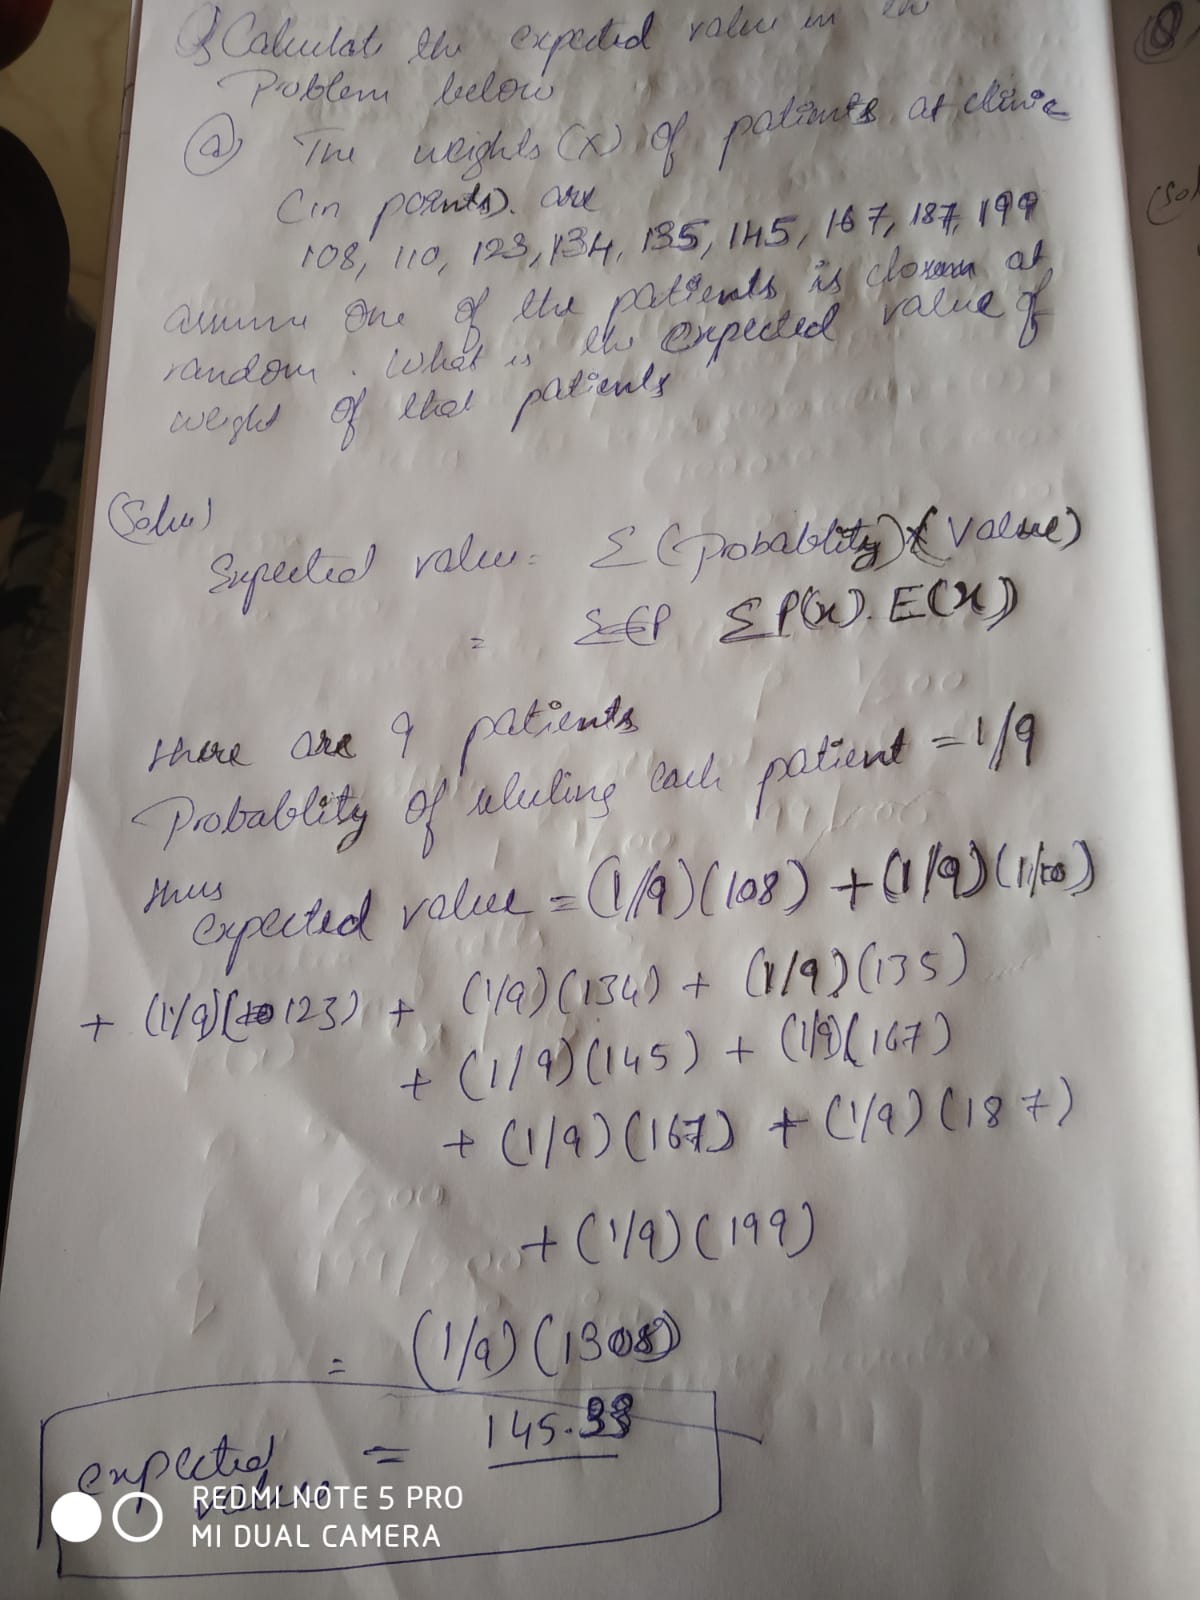 Q) Calculate the expected value in the
Problem below
a) The weights (X) of patients at clinic
(in pounds) are
108, 110, 123, 134, 135, 145, 167, 187, 199
assume one of the patients is chosen at
random, what is the expected value of
weight of that patients
(Solu)
Expected value = Σ (probability) × (value)
= Σ P(x). E(x)
there are 9 patients
Probability of selecting each patient = 1/9
thus
expected value = (1/9)(108) + (1/9)(110)
+ (1/9)(123) + (1/9)(134) + (1/9)(135)
+ (1/9)(145) + (1/9)(167)
+ (1/9)(167) + (1/9)(187)
+ (1/9)(199)
= (1/9)(1308)
expected = 145.33
REDMI NOTE 5 PRO
MI DUAL CAMERA